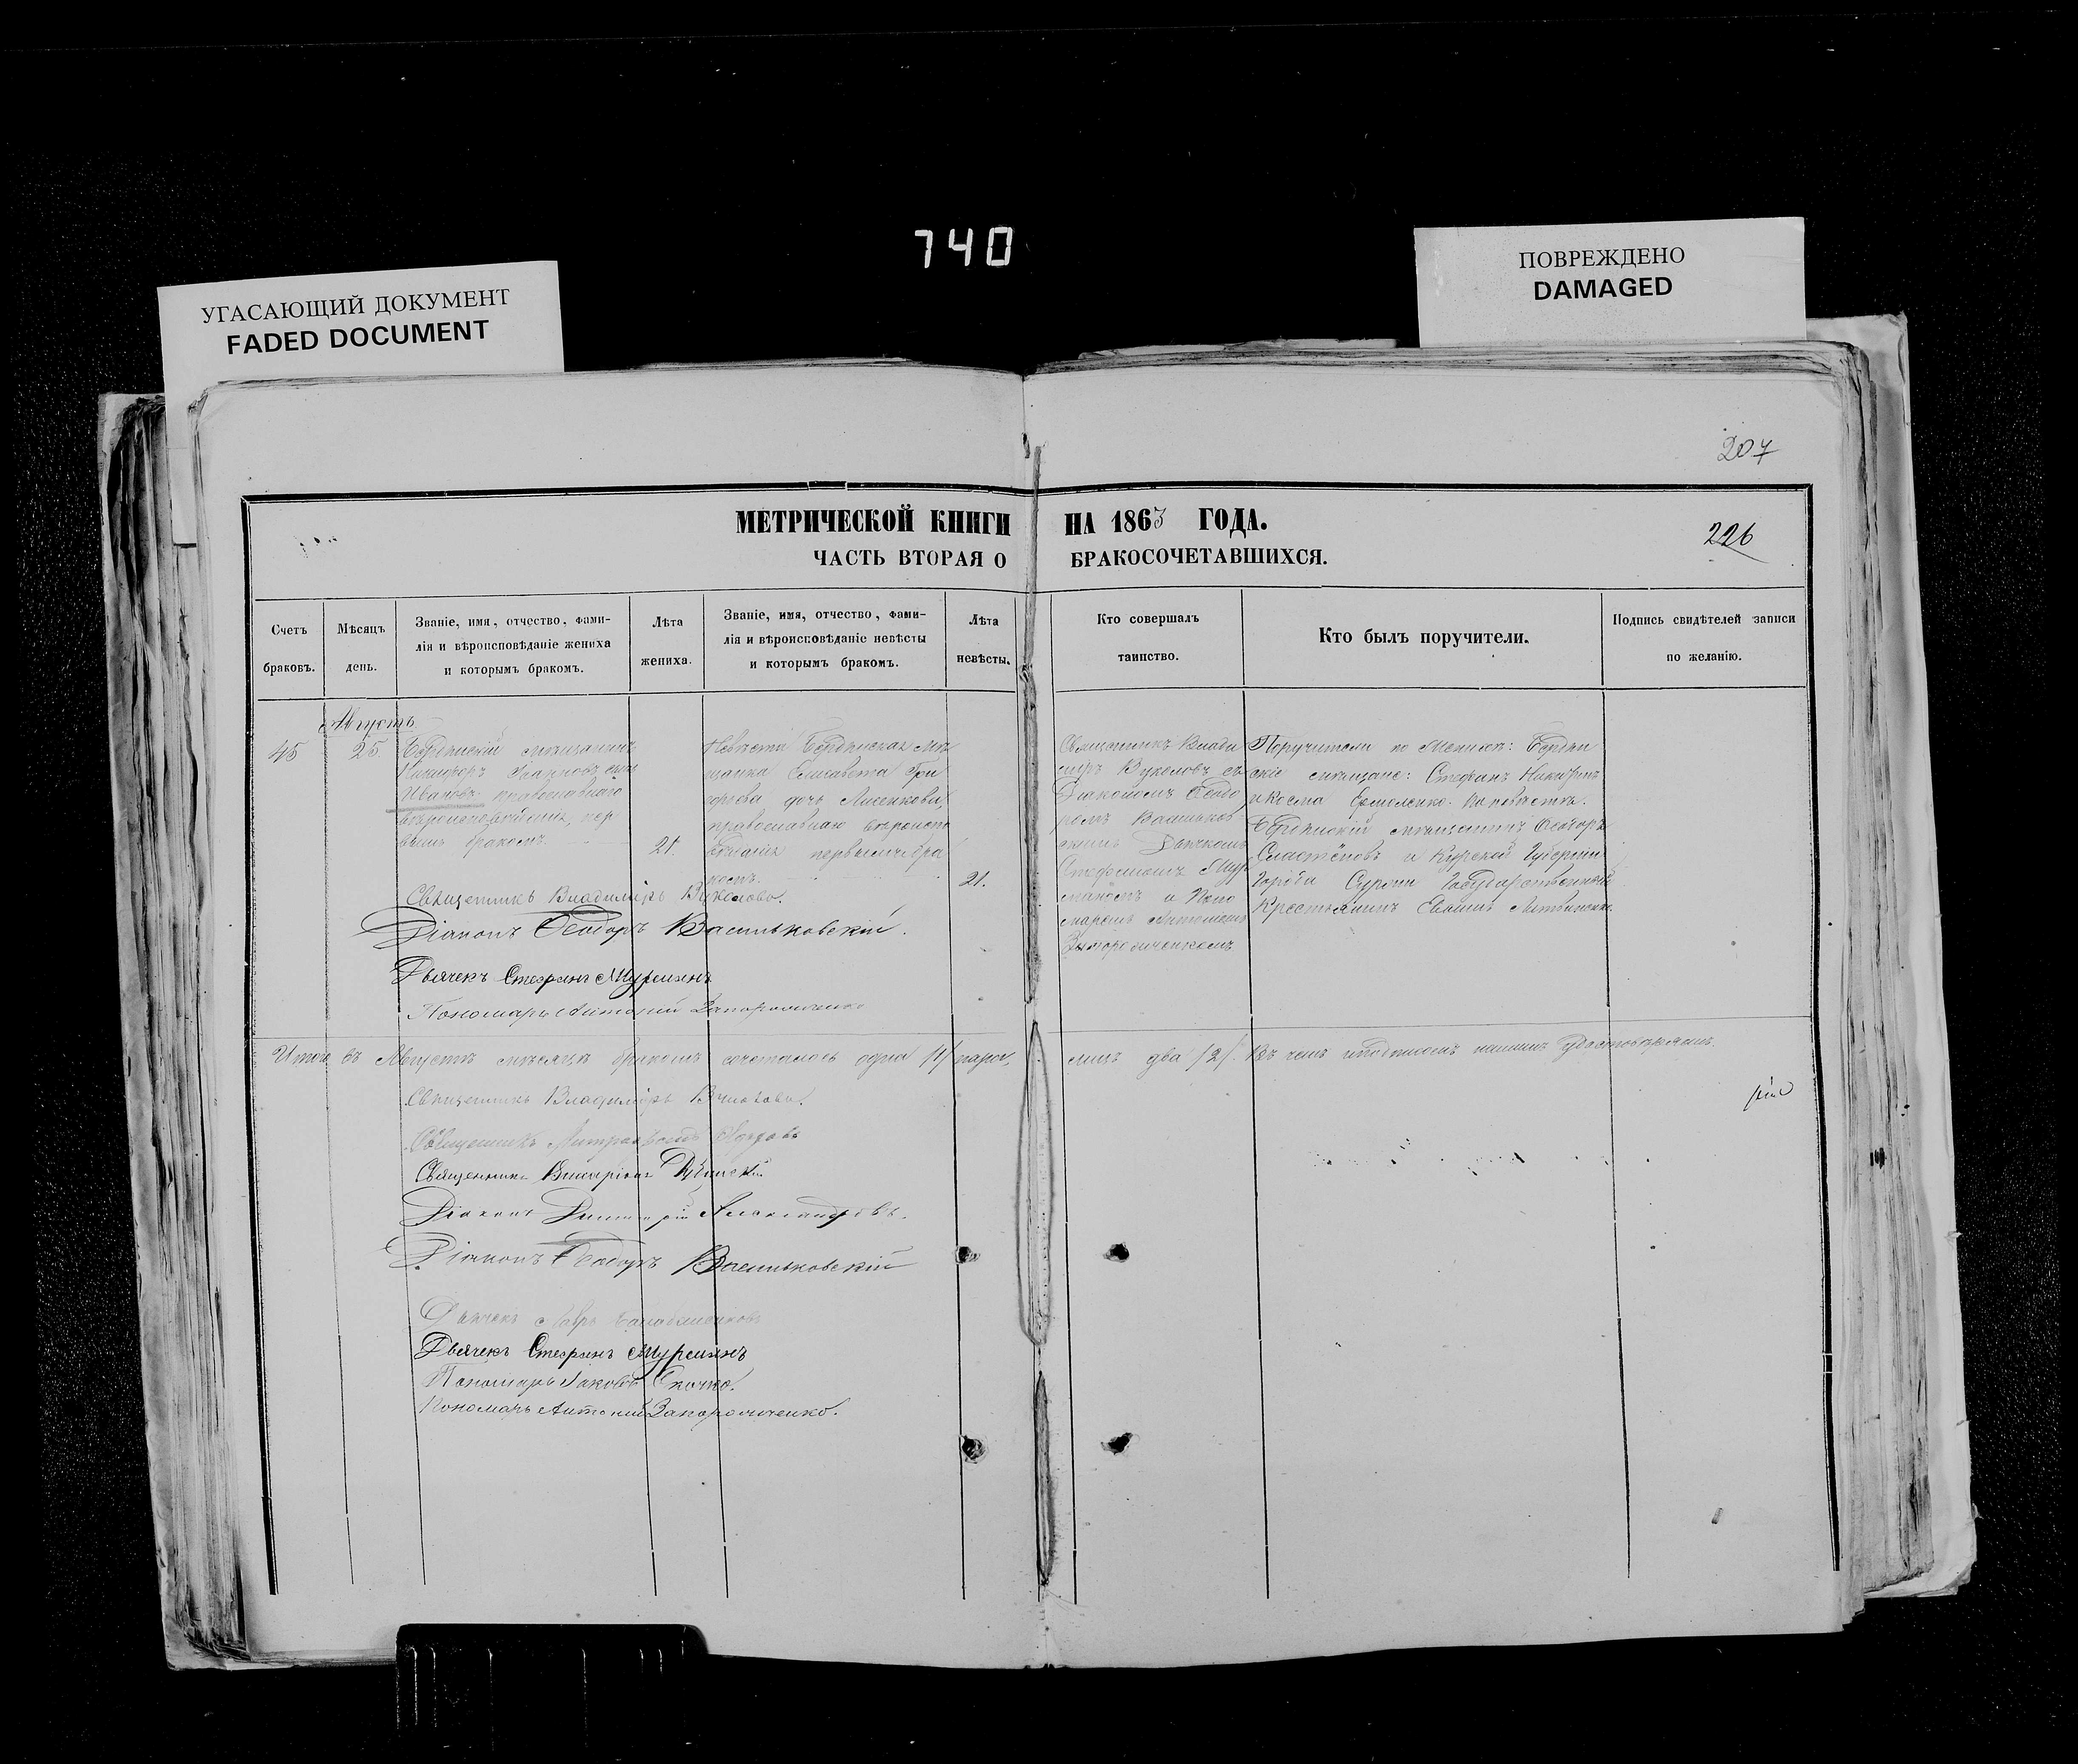 740
УГАСАЮЩИЙ ДОКУМЕНТ
FADED DOCUMENT
ПОВРЕЖДЕНО
DAMAGED
207
МЕТРИЧЕСКОЙ КНИГИ НА 1863 ГОДА.
226
ЧАСТЬ ВТОРАЯ О БРАКОСОЧЕТАВШИХСЯ.
Счетъ браковъ.
Мѣсяцъ день.
Званіе, имя, отчество, фами-
лія и вѣроисповѣданіе жениха
и которымъ бракомъ.
Лѣта жениха.
Званіе, имя, отчество, фами-
лія и вѣроисповѣданіе невѣсты
и которымъ бракомъ.
Лѣта невѣсты.
Кто совершалъ
таинство.
Кто былъ поручители.
Подпись свидѣтелей записи
по желанію.
Августъ
45
25.
Бердянскій мѣщанинъ
Никифоръ сынъ
Ивановъ православнаго
вѣроисповѣданія, пер
вымъ бракомъ.
21.
Невѣста Бердянская мѣ
щанка Елисавета Гри
горьева дочь Лисенкова,
православнаго вѣроиспо
вѣданія первымъ бра
комъ.
21.
Священникъ Влади
міръ Вуколовъ съ
Діакономъ Ѳеодо
ромъ Васильков
скимъ Дьячкомъ
Стефаномъ Мур
и Поно
маремъ Антоніемъ
Запорожченкомъ
Поручители по Женихѣ: Бердян
скіе мѣщане: Стефанъ
и Косма Ермоленко. По невѣстѣ.
Бердянскій мѣщанинъ Ѳеодоръ
Сластёновъ и Курской Губерніи
Города Суджи Государственный
Крестьянинъ Литвиненко.
Священникъ Владиміръ Вуколовъ.
Діаконъ Ѳеодоръ Васильковскій.
Дьячекъ Стефанъ Мурзинъ
Пономарь Антоній Запорожченко
Итого въ Августѣ мѣсяцѣ бракомъ сочеталось одна /1/ пара, лицъ два /2/. Въ чемъ и подписомъ нашимъ удостовѣряемъ.
Священникъ Владиміръ Вуколовъ.
Священникъ Митрофанъ
Священникъ Виссаріонъ
Діаконъ Димитрій Александровъ.
Діаконъ Ѳеодоръ Васильковскій
Дьячекъ
Дьячекъ Стефанъ Мурзинъ
Пономарь Іаковъ Сночко.
Пономарь Антоній Запорожченко.